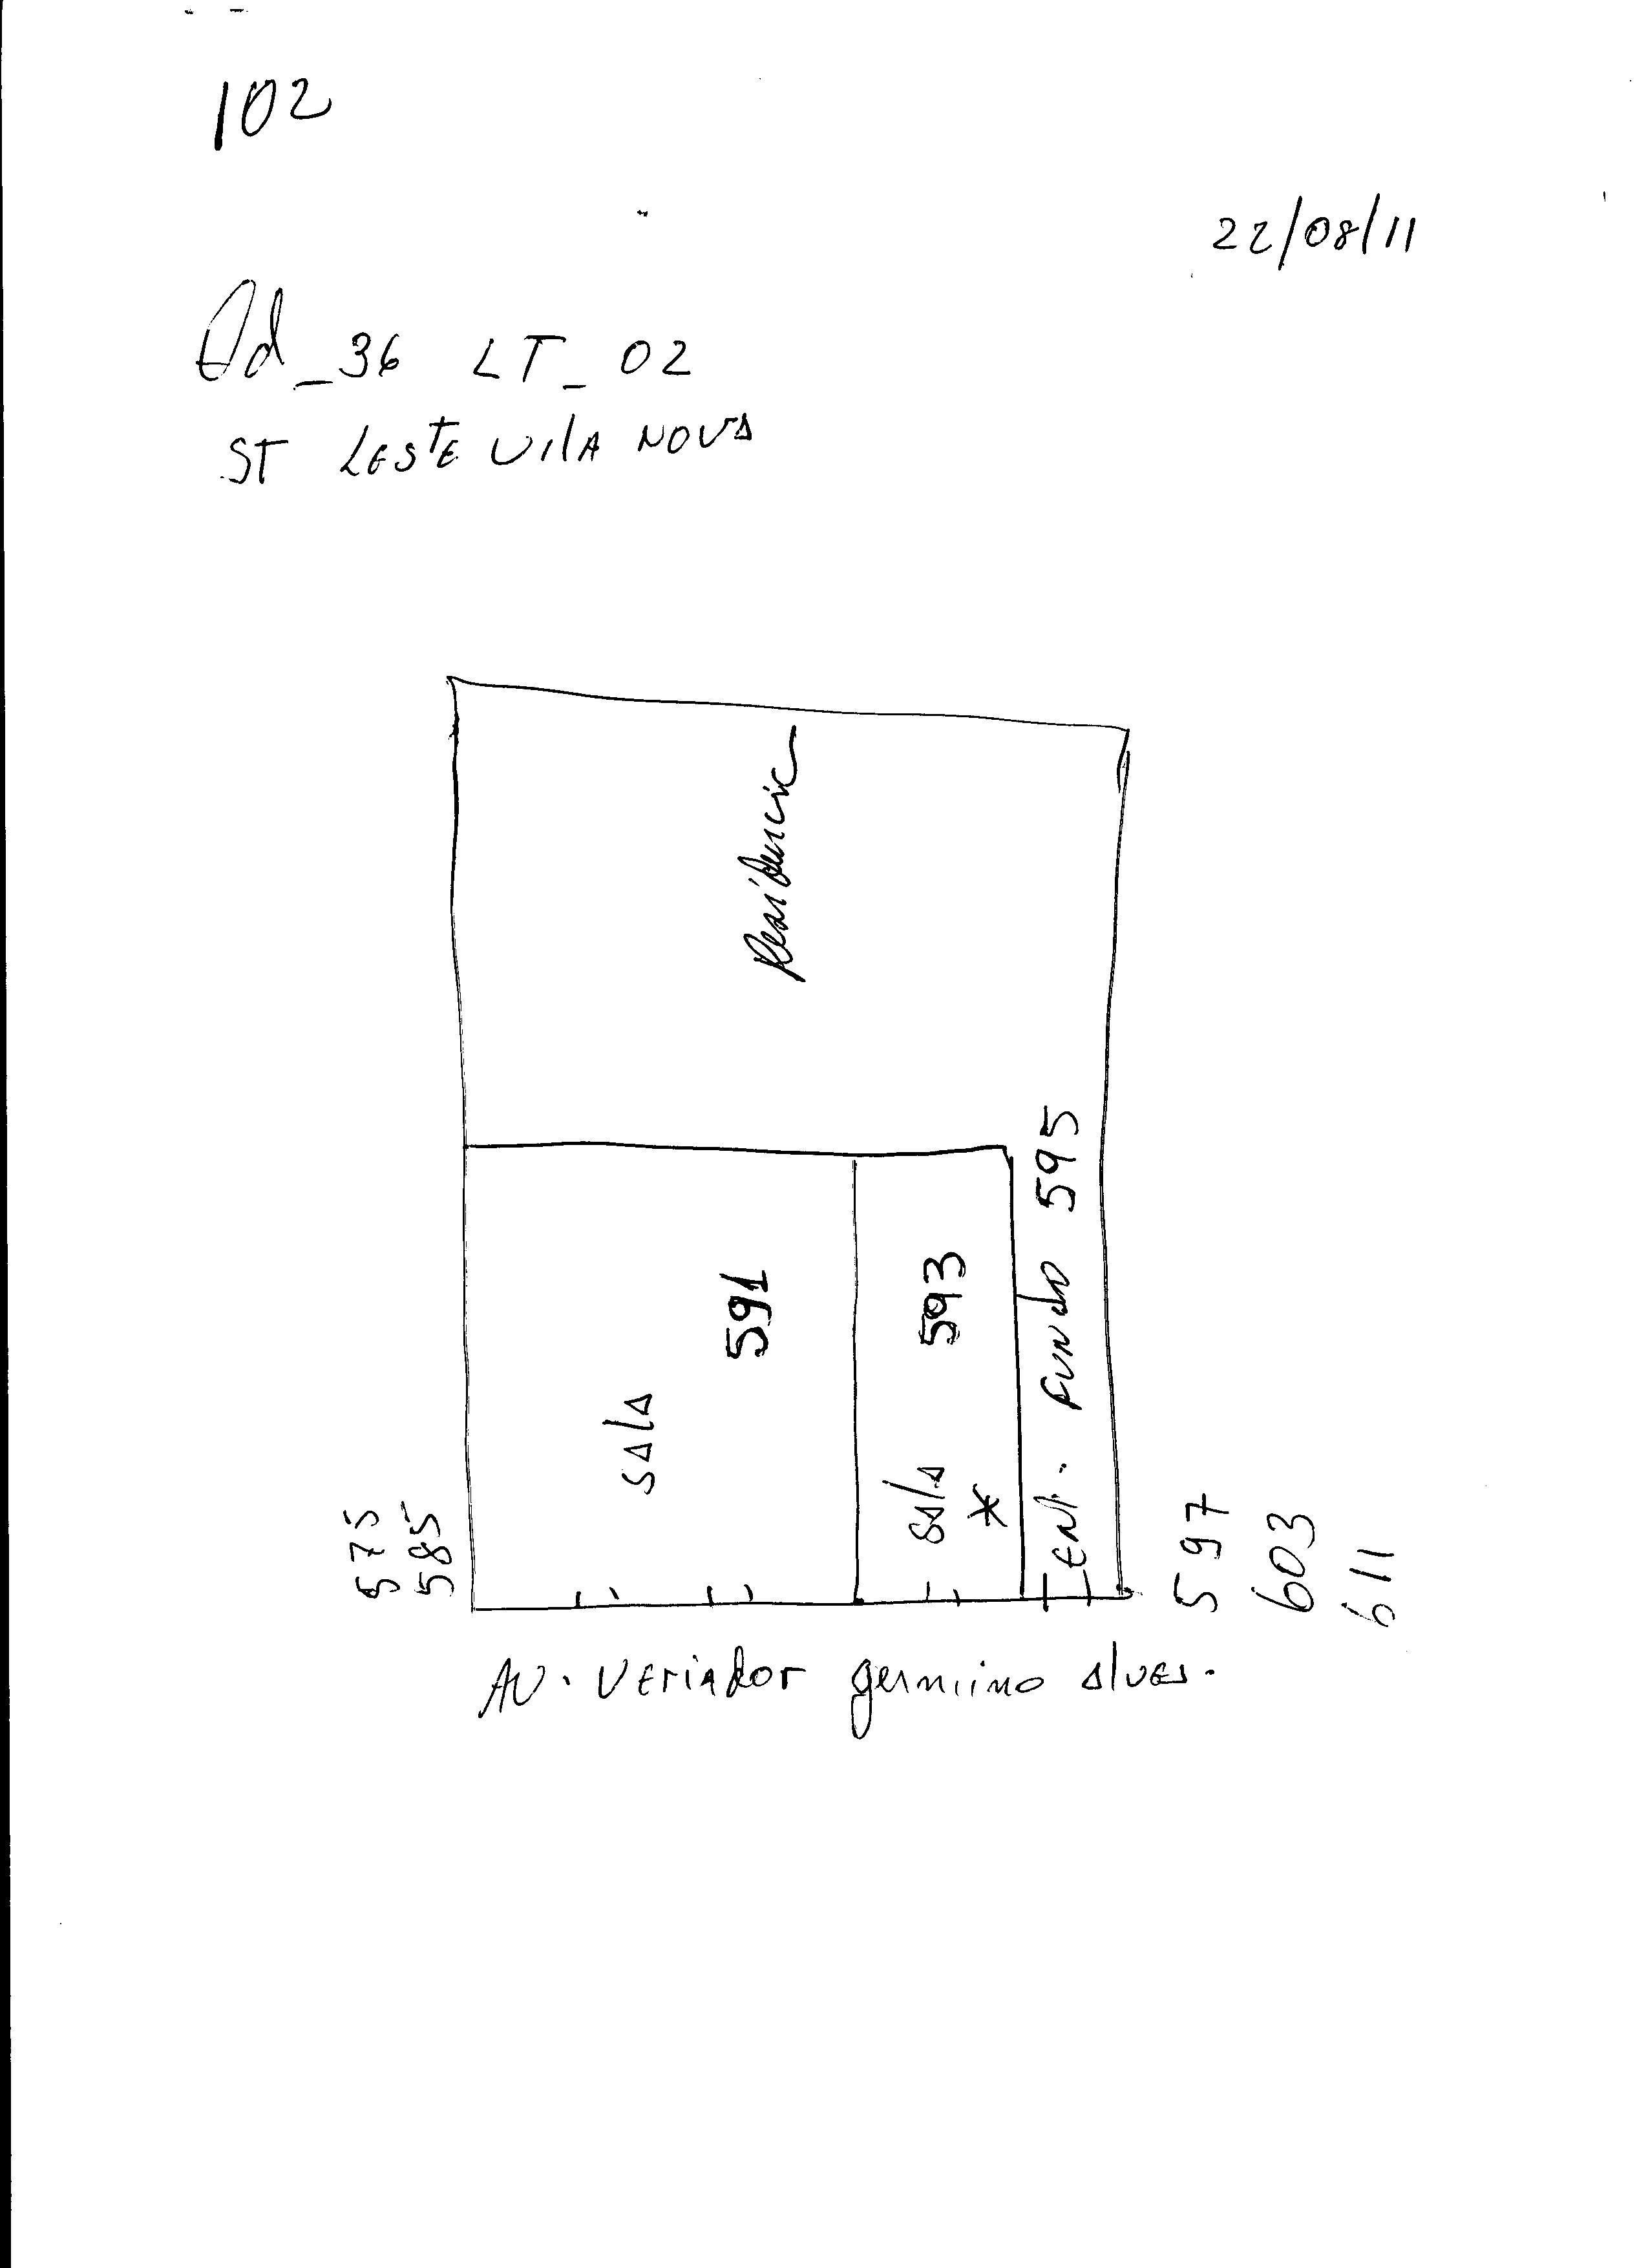 102
22/08/11
Qd_36 LT_02
ST LESTE VILA NOVA
Residencia
sala 591
sala 593
*
ENT. FUNDO 595
575
585
597
603
611
AV. VERIADOR germino alves.